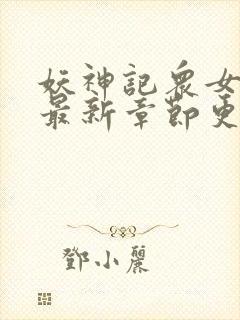 妖神記眾女
最新章節更
鄧小麗